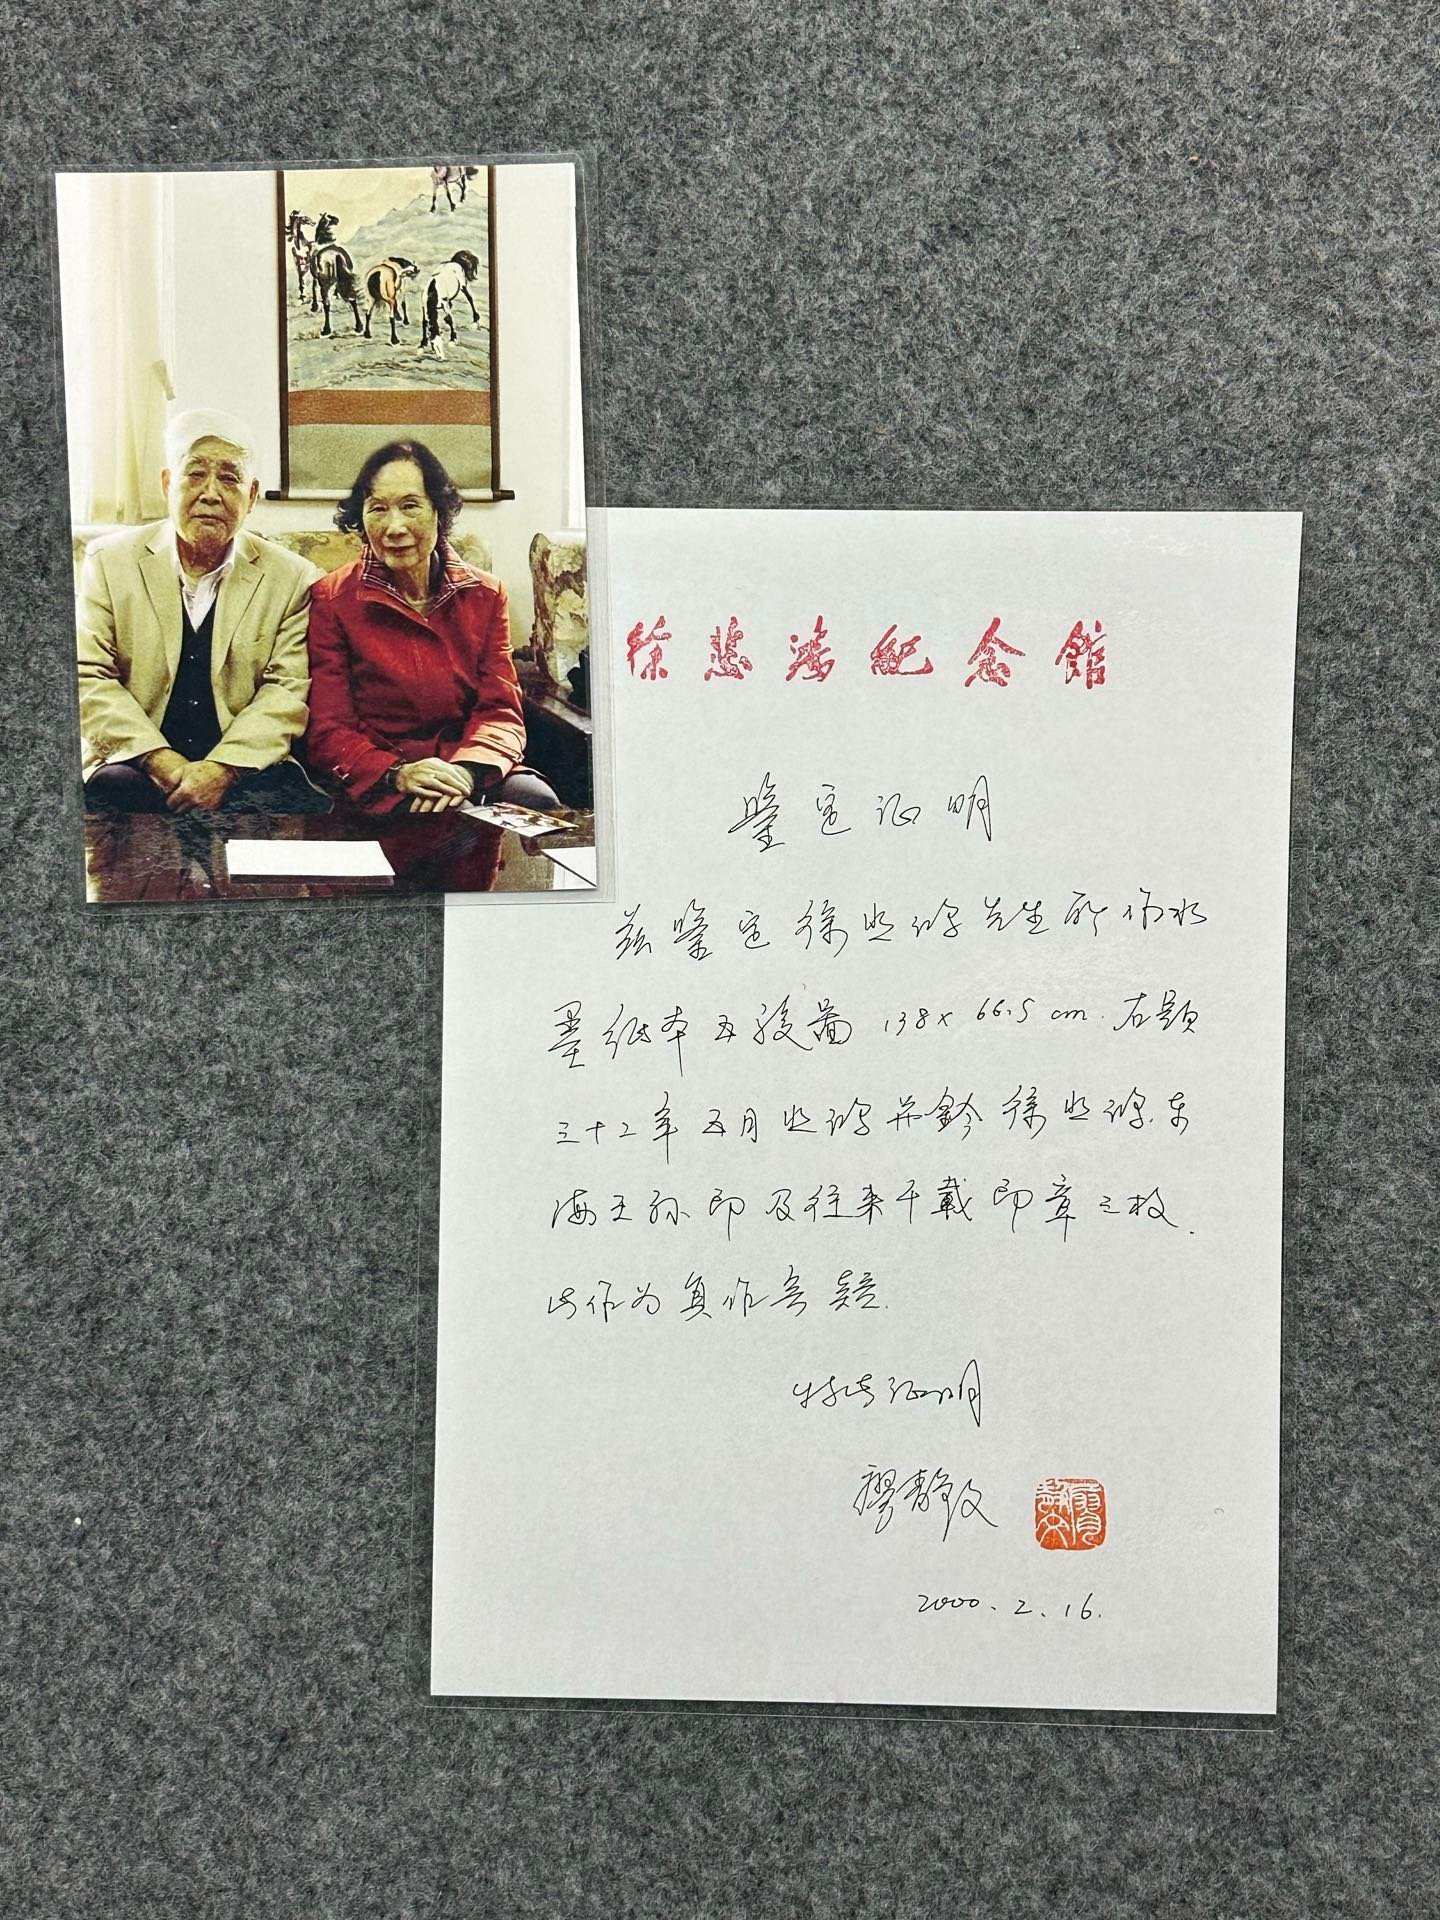 徐悲鸿纪念馆
鉴定证明
兹鉴定徐悲鸿先生所作水
墨纸本五骏图 138x 66.5 cm. 右题
三十二年五月悲鸿并钤徐悲鸿.东
海王孙印及往来千载印章三枚.
此作为真作无疑.
特此证明
廖静文
廖静文
2000.2.16.